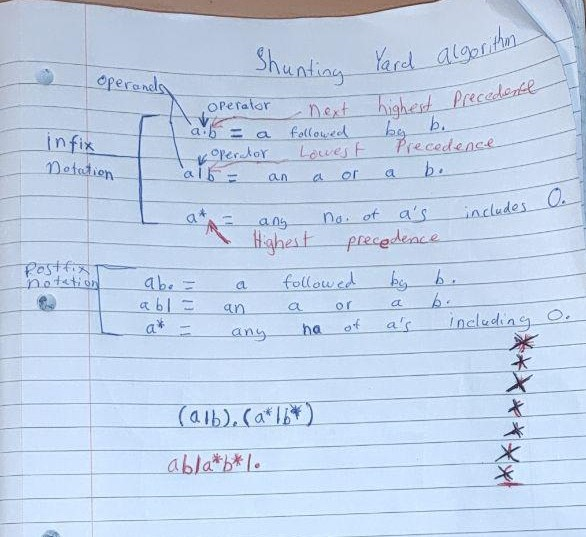 Shunting Yard algorithm
operands
operator Next highest Precedence
infix notation
a.b = a followed by b.
operator Lowest Precedence
a|b = an a or a b.
a* = any no. of a's includes 0.
Highest precedence
Postfix notation
ab. = a followed by b.
ab| = an a or a b.
a* = any no of a's including 0.
*
*
*
*
*
*
*
(a|b).(a*|b*)
ab|a*b*|.